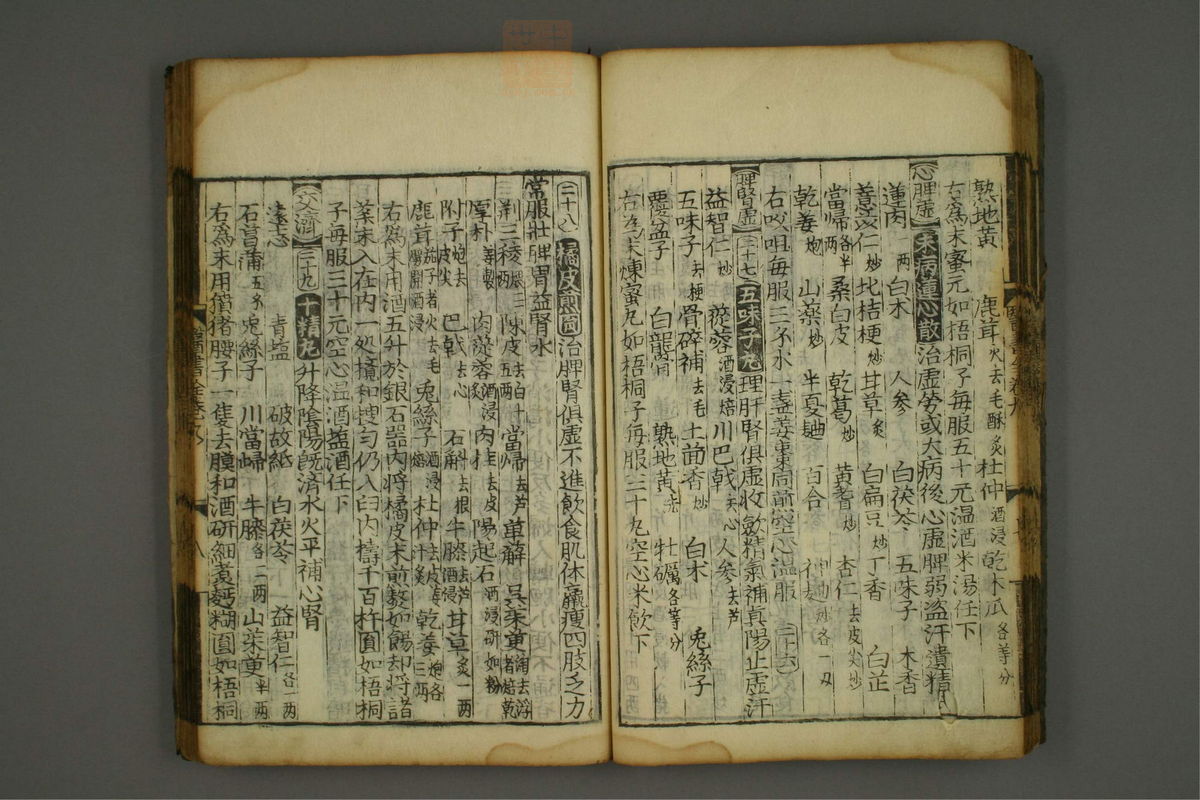 熟地黄 鹿茸火去毛酥炙 杜仲酒浸 乾木瓜各等分
右為末蜜元如梧桐子每服五十元温酒米湯任下
心脾虛 末病蓮心散 治虛勞或大病後心虛脾弱盗汗遺精
蓮肉一両 白木 人参 白茯苓 五味子 木香
薏苡仁炒 北桔梗炒 甘草炙 白扁豆炒 丁香 白芷
當帰各半両 桑白皮 乾葛炒 黃耆炒 杏仁去皮尖炒
乾姜炮 山薬炒 半夏麯 百合 炒各一刄
右㕮咀每服三不水一盞姜棗同前空心温服 三十六
脾腎虛 三十七 五味子丸 理肝腎俱虛收斂精氣補真陽止虛汗
益智仁炒 蓯蓉酒浸焙 川巴戟夫心 人参去芦
五味子夫梗 骨碎補去毛 土茴香炒 白术 兎絲子
覆盆子 白龍骨 熟地黄洗 牡礪各等分
右為末煉蜜丸如梧桐子每服三十丸空心米飲下
二十八 橘皮煎圓 治脾腎俱虛不進飲食肌体羸瘦四肢乏力
常服壯脾胃益腎水
荆三稜煨三両 陳皮去白十五両 當帰去芦 萆薢 吳茱萸淘去浮者焙乾
厚朴姜製 肉蓯蓉酒浸炙 肉桂去皮 陽起石酒浸研如粉
附子炮去皮尖 巴戟去心 石斛去根 牛膝去芦酒浸 甘草炙一両
鹿茸茄子者火去毛劈開酒浸 兎絲子酒浸焙 杜仲去皮姜汁炙 乾姜炮各三両
右為末用酒五升於銀石器内將橘皮末前熬如餳却將諸
薬末入在内一処攪和搜勻仍入臼内擣千百杵圓如梧桐
子每服三十元空心温酒盐酒任下
交濟 三十九 十精丸 升降陰陽旣済水火平補心腎
遠志 青盐 破故紙 白茯苓 益智仁各一両
石菖蒲五刄 兎絲子 川當帰 牛膝各二両 山茱萸半両
右為末用獖猪腰子一隻去膜和酒研細煮麪糊圓如梧桐